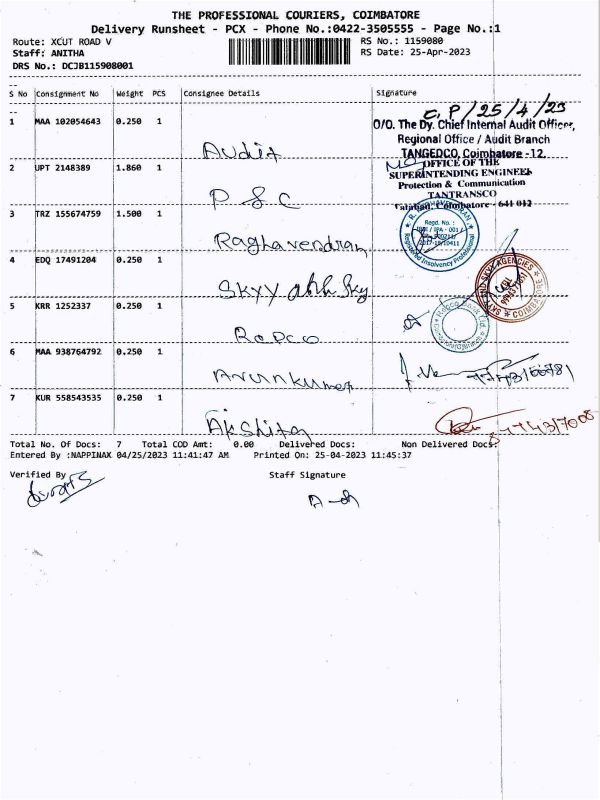 THE PROFESSIONAL COURIERS, COIMBATORE
Delivery Runsheet - PCX - Phone No.:0422-3505555 - Page No.:1
Route: XCUT ROAD V
RS No.: 1159080
Staff: ANITHA
RS Date: 25-Apr-2023
DRS No.: DCJB115908001
S No Consignment No Weight PCS Consignee Details Signature
C.P/25/4/23
1 MAA 102054643 0.250 1 Audit
O/O. The Dy. Chief Internal Audit Officer,
Regional Office / Audit Branch
TANGEDCO, Coimbatore -12.
2 UPT 2148389 1.860 1 P & C
OFFICE OF THE
SUPERINTENDING ENGINEER
Protection & Communication
TANTRANSCO
Coimbatore - 641 012
3 TRZ 155674759 1.500 1 Raghavendran
Regd. No :
Registered Insolvency Professional
4 EDQ 17491204 0.250 1 SKYY Sky
SKY AGENCIES
COIMBATORE
5 KRR 1252337 0.250 1 Repco
6 MAA 938764792 0.250 1 Arunkumar
7 KUR 558543535 0.250 1 Akshita
Total No. Of Docs: 7 Total COD Amt: 0.00 Delivered Docs: Non Delivered Docs:
Entered By :NAPPINAX 04/25/2023 11:41:47 AM Printed On: 25-04-2023 11:45:37
Verified By Staff Signature